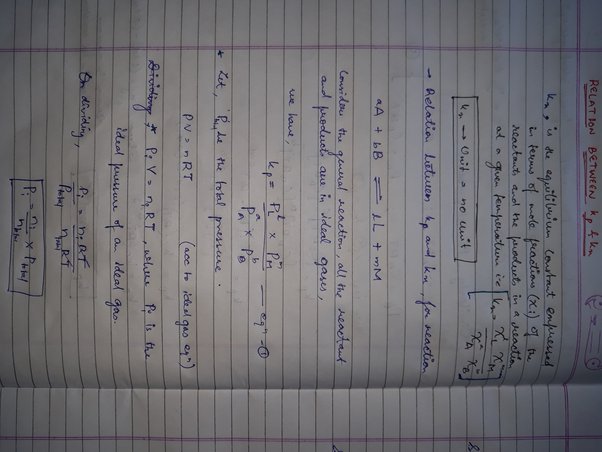 RELATION BETWEEN kp & kn
kn, is the equilibrium constant expressed
in terms of mole fractions (xi) of the
reactants and the products in a reaction
at a given temperature i.e. kn = X_L^l X_M^m / X_A^a X_B^b
kn → Unit = no unit
→ Relation between kp and kn for reaction
aA + bB ⇌ lL + mM
Consider the general reaction, all the reactant
and products are in ideal gases,
we have,
kp = P_L^l × P_M^m / P_A^a × P_B^b — eqⁿ - ①
* Let, P_total be the total pressure.
PV = nRT (acc to ideal gas eqⁿ)
Dividing * Pi V = ni RT, where Pi is the
ideal pressure of a ideal gas.
On dividing,
Pi / P_total = ni RT / n_total RT
Pi = ni / n_total × P_total